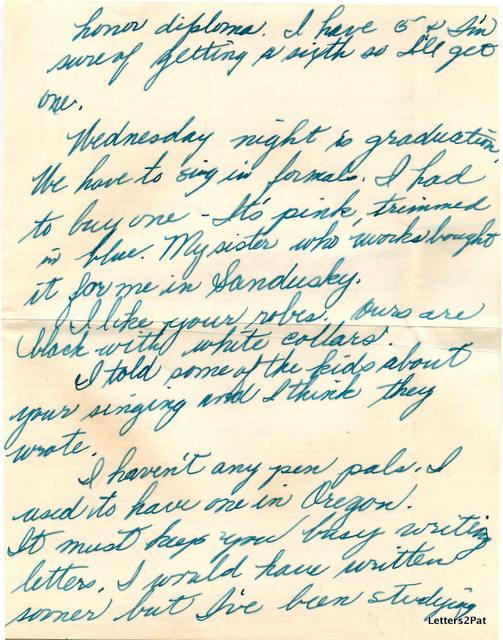 honor diploma. I have 5 & I'm
sure of getting a sixth so I'll get
one.
Wednesday night is graduation.
We have to sing in formals. I had
to buy one - It's pink, trimmed
in blue. My sister who works bought
it for me in Sandusky.
I like your robes. Ours are
black with white collars.
I told some of the kids about
your singing and I think they
wrote.
I haven't any pen pals. I
used to have one in Oregon.
It must keep you busy writing
letters. I would have written
sooner but I've been studying
Letters2Pat